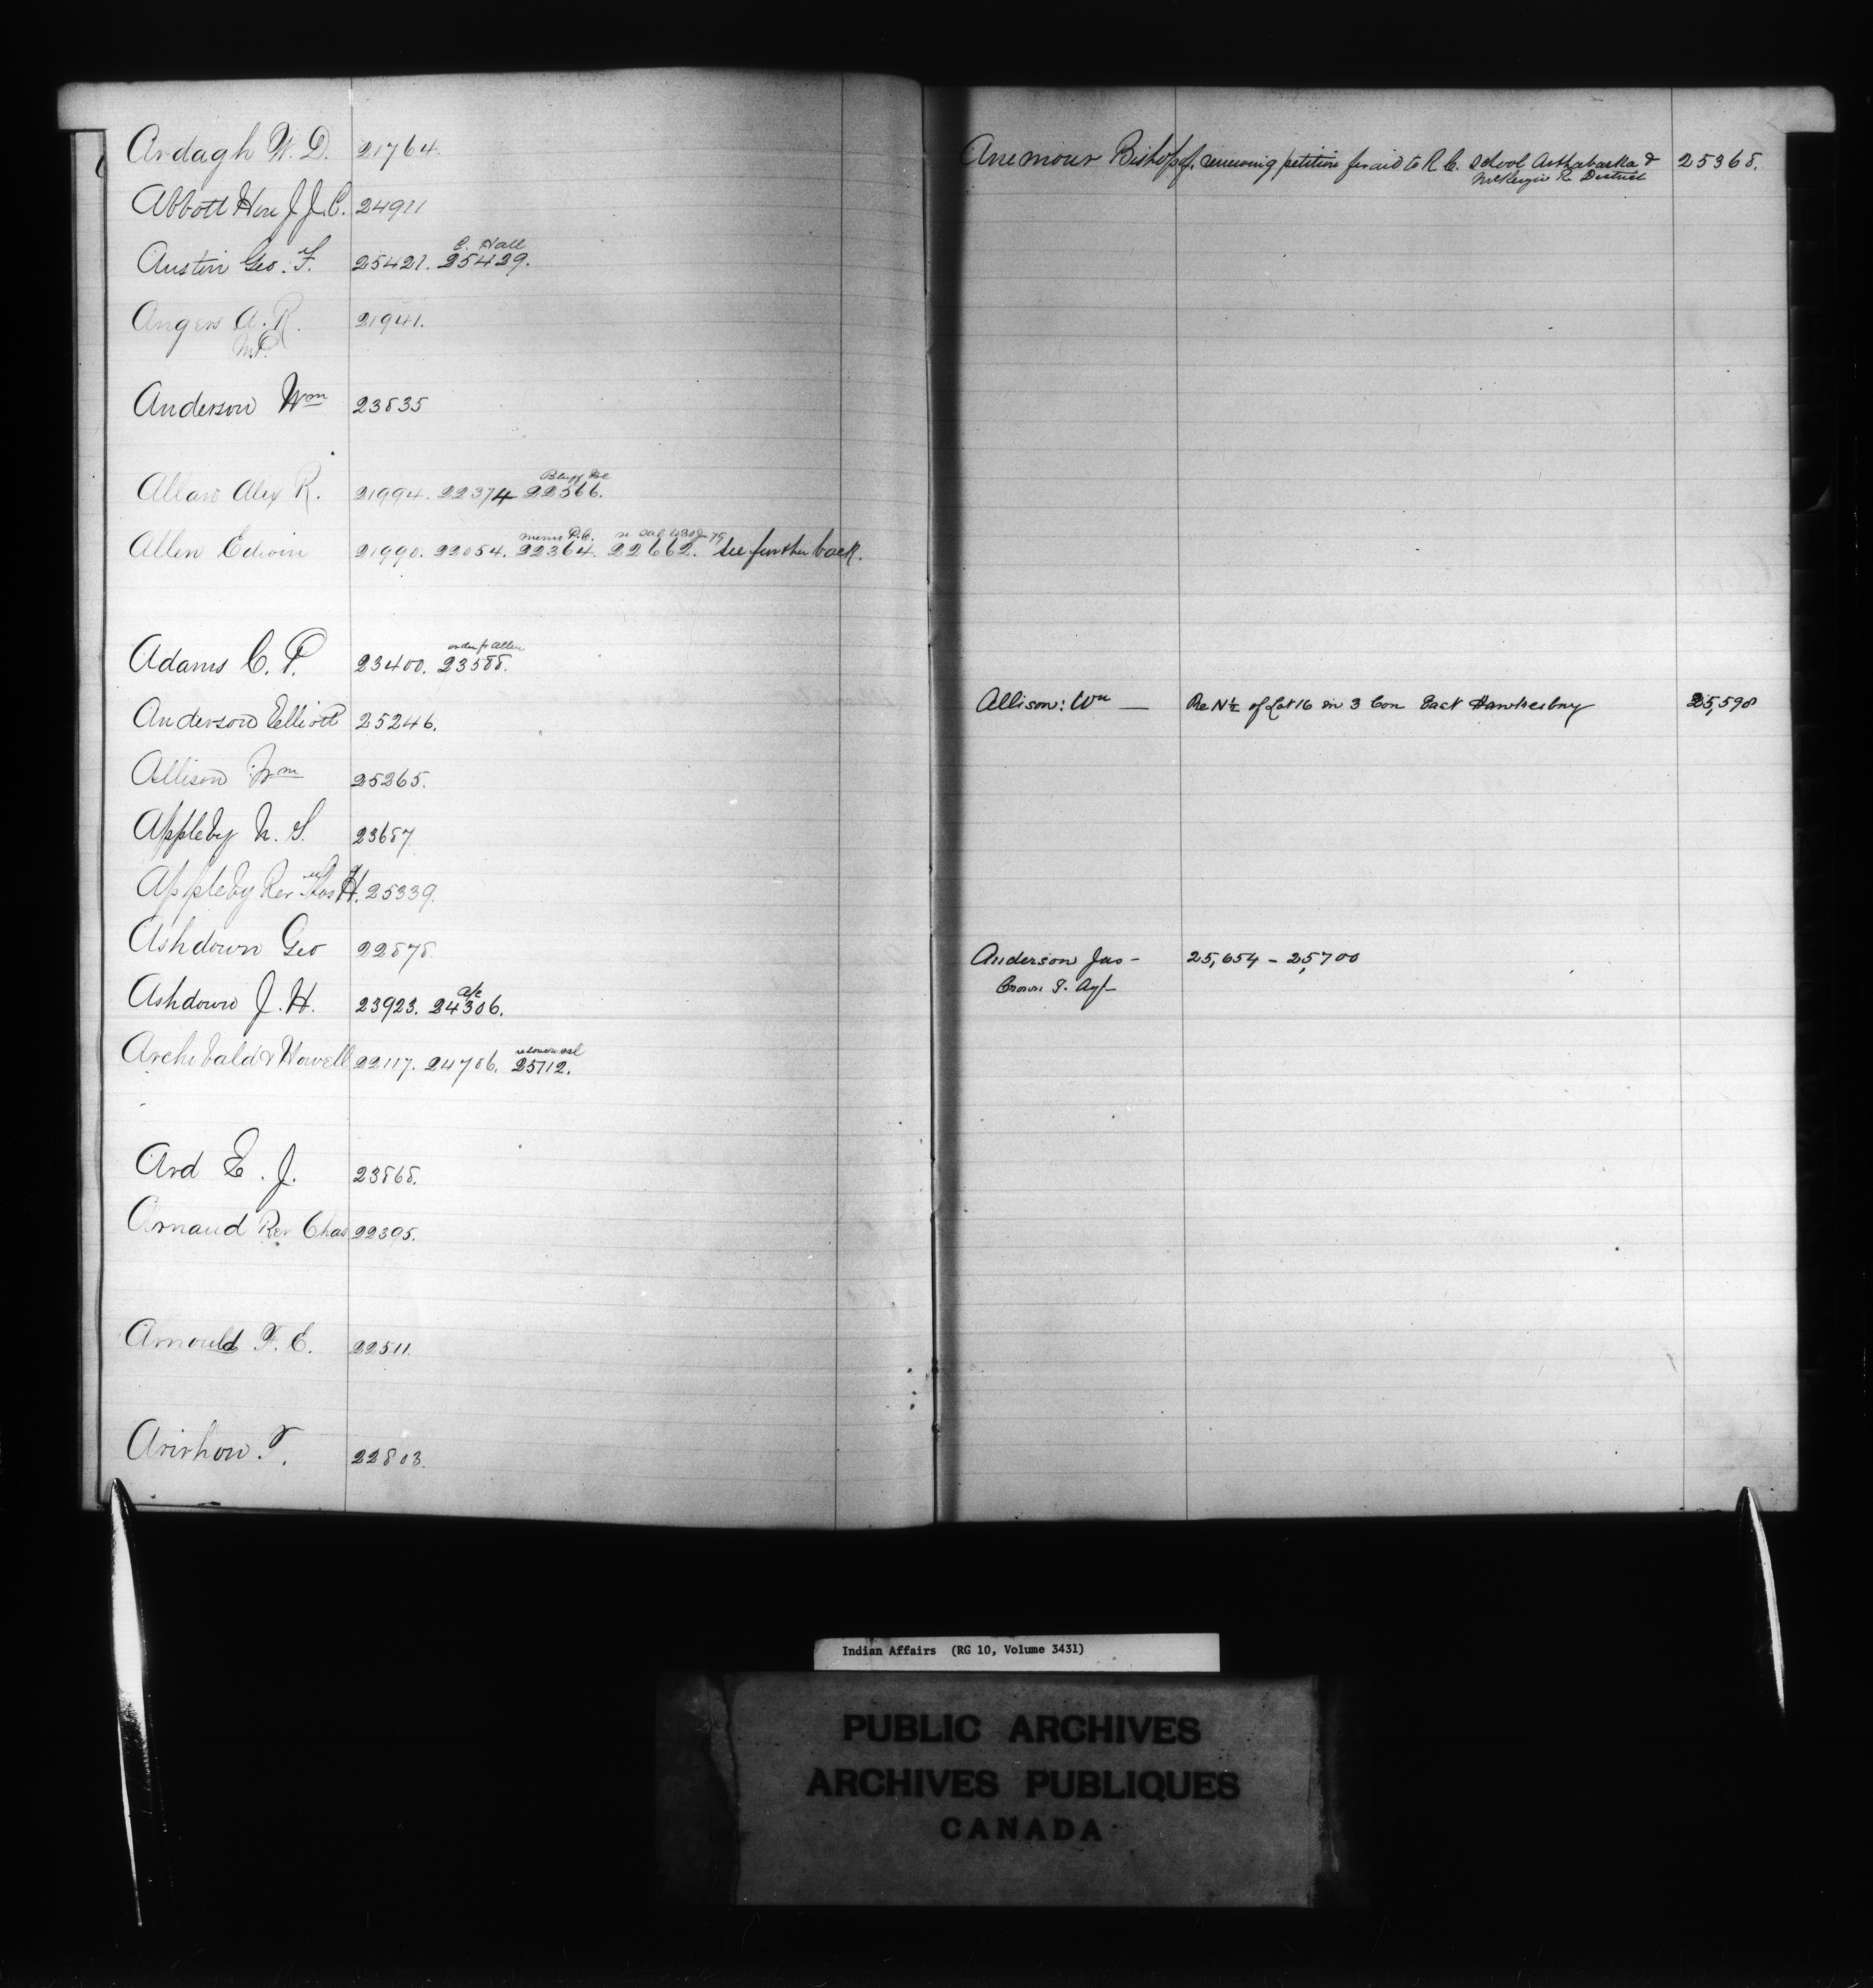 Ardagh W. D. 21764.
Abbott Hon J. J. C. 24911
C. Hall
Austin Geo. F. 25421. 25429.
Angers A. R. 21941.
M.P.
Anderson Wm 23835
Bluff
Allan Alex R. 21994. 22374 22566.
memo P.C. re
Allen Edwin 21990. 22054. 22364. 22662. see further back.
order fr Allen
Adams C. P. 23400. 23588.
Anderson Elliott 25246.
Allison Wm 25265.
Appleby N. S. 23687
Appleby Rev Thos H. 25339.
Ashdown Geo 22878.
a/c
Ashdown J. H. 23923. 24306.
Archibald & Howell 22117. 24786. 25712.
Ard E. J. 23868.
Arnaud Rev Chas 22395.
Arnould F. E. 22511.
Arirhon T. 22803.
Anemour Bishop of, renewing petition for aid to R. C. School Arthabaska & 25368.
McKenzie R. District
Allison: Wm — Re N½ of Lot 16 in 3 Con East Hawkesbury 25,590
Anderson Jas – 25,654 – 25,700
Crown T. Agt –
Indian Affairs (RG 10, Volume 3431)
PUBLIC ARCHIVES
ARCHIVES PUBLIQUES
CANADA